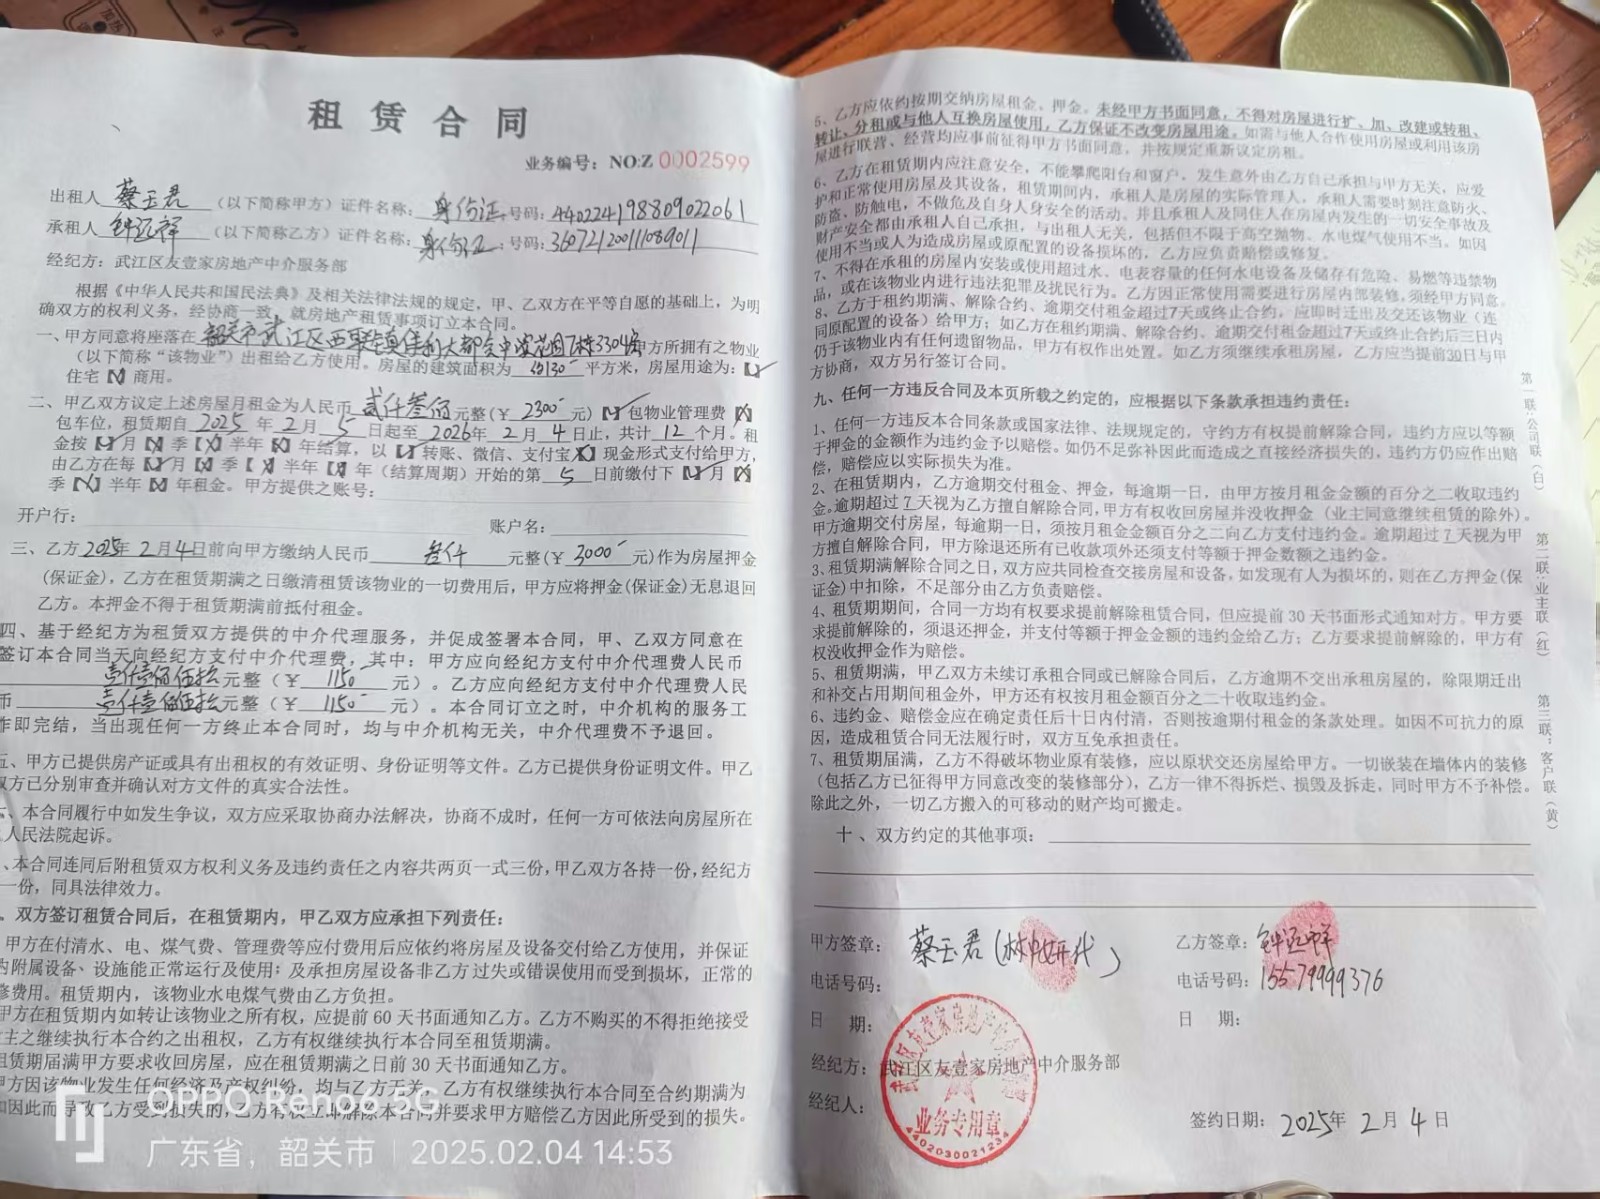 租赁合同
业务编号：NO:Z 0002599
出租人 蔡玉君 （以下简称甲方）证件名称：身份证 号码：440224198809022061
承租人 钟远祥 （以下简称乙方）证件名称：身份证 号码：360721200111089011
经纪方：武江区友壹家房地产中介服务部
根据《中华人民共和国民法典》及相关法律法规的规定，甲、乙双方在平等自愿的基础上，为明
确双方的权利义务，经协商一致，就房地产租赁事项订立本合同。
一、甲方同意将座落在 韶关市武江区西联镇 大都会中 花园7栋3304房 甲方所拥有之物业
（以下简称“该物业”）出租给乙方使用。房屋的建筑面积为 约130 平方米，房屋用途为：
住宅 商用。
二、甲乙双方议定上述房屋月租金为人民币 贰仟叁佰 元整（￥ 2300 元） 包物业管理费
包车位，租赁期自 2025 年 2 月 5 日起至 2026年 2 月 4 日止，共计 12 个月。租
金按 月 季 半年 年结算，以 转账、微信、支付宝 现金形式支付给甲方，
由乙方在每 月 季 半年 年（结算周期）开始的第 5 日前缴付下 月
季 半年 年租金。甲方提供之账号：
开户行： 账户名：
三、乙方 2025年 2 月 4 日前向甲方缴纳人民币 叁仟 元整（￥ 3000 元)作为房屋押金
(保证金)，乙方在租赁期满之日缴清租赁该物业的一切费用后，甲方应将押金(保证金)无息退回
乙方。本押金不得于租赁期满前抵付租金。
四、基于经纪方为租赁双方提供的中介代理服务，并促成签署本合同，甲、乙双方同意在
签订本合同当天向经纪方支付中介代理费，其中：甲方应向经纪方支付中介代理费人民币
壹仟壹佰伍拾 元整（￥ 1150 元）。乙方应向经纪方支付中介代理费人民
币 壹仟壹佰伍拾 元整（￥ 1150 元）。本合同订立之时，中介机构的服务工
作即完结，当出现任何一方终止本合同时，均与中介机构无关，中介代理费不予退回。
五、甲方已提供房产证或具有出租权的有效证明、身份证明等文件。乙方已提供身份证明文件。甲乙
双方已分别审查并确认对方文件的真实合法性。
、本合同履行中如发生争议，双方应采取协商办法解决，协商不成时，任何一方可依法向房屋所在
人民法院起诉。
、本合同连同后附租赁双方权利义务及违约责任之内容共两页一式三份，甲乙双方各持一份，经纪方
一份，同具法律效力。
、双方签订租赁合同后，在租赁期内，甲乙双方应承担下列责任：
甲方在付清水、电、煤气费、管理费等应付费用后应依约将房屋及设备交付给乙方使用，并保证
内附属设备、设施能正常运行及使用；及承担房屋设备非乙方过失或错误使用而受到损坏，正常的
修费用。租赁期内，该物业水电煤气费由乙方负担。
甲方在租赁期内如转让该物业之所有权，应提前 60 天书面通知乙方。乙方不购买的不得拒绝接受
主之继续执行本合约之出租权，乙方有权继续执行本合同至租赁期满。
租赁期届满甲方要求收回房屋，应在租赁期满之日前 30 天书面通知乙方。
甲方因该物业发生任何经济及产权纠纷，均与乙方无关，乙方有权继续执行本合同至合约期满为
如因此而导致乙方受到损失的，乙方有权立即解除本合同并要求甲方赔偿乙方因此所受到的损失。
5、乙方应依约按期交纳房屋租金、押金。未经甲方书面同意，不得对房屋进行扩、加、改建或转租、
转让、分租或与他人互换房屋使用，乙方保证不改变房屋用途。如需与他人合作使用房屋或利用该房
屋进行联营、经营均应事前征得甲方书面同意，并按规定重新议定房租。
6、乙方在租赁期内应注意安全，不能攀爬阳台和窗户，发生意外由乙方自己承担与甲方无关，应爱
护和正常使用房屋及其设备，租赁期间内，承租人是房屋的实际管理人。承租人需要时刻注意防火、
防盗、防触电，不做危及自身人身安全的活动。并且承租人及同住人在房屋内发生的一切安全事故及
财产安全都由承租人自己承担，与出租人无关，包括但不限于高空抛物、水电煤气使用不当。如因
使用不当或人为造成房屋或原配置的设备损坏的，乙方应负责赔偿或修复。
7、不得在承租的房屋内安装或使用超过水、电表容量的任何水电设备及储存有危险、易燃等违禁物
品，或在该物业内进行违法犯罪及扰民行为。乙方因正常使用需要进行房屋内部装修，须经甲方同意。
8、乙方于租约期满、解除合约、逾期交付租金超过7天或终止合约，应即时迁出及交还该物业（连
同原配置的设备）给甲方；如乙方在租约期满、解除合约、逾期交付租金超过7天或终止合约后三日内
仍于该物业内有任何遗留物品，甲方有权作出处置。如乙方须继续承租房屋，乙方应当提前30日与甲
方协商，双方另行签订合同。
九、任何一方违反合同及本页所载之约定的，应根据以下条款承担违约责任：
1、任何一方违反本合同条款或国家法律、法规规定的，守约方有权提前解除合同，违约方应以等额
于押金的金额作为违约金予以赔偿。如仍不足弥补因此而造成之直接经济损失的，违约方仍应作出赔
偿，赔偿应以实际损失为准。
2、在租赁期内，乙方逾期交付租金、押金，每逾期一日，由甲方按月租金金额的百分之二收取违约
金。逾期超过 7 天视为乙方擅自解除合同，甲方有权收回房屋并没收押金（业主同意继续租赁的除外）。
甲方逾期交付房屋，每逾期一日，须按月租金金额百分之二向乙方支付违约金。逾期超过 7 天视为甲
方擅自解除合同，甲方除退还所有已收款项外还须支付等额于押金数额之违约金。
3、租赁期满解除合同之日，双方应共同检查交接房屋和设备，如发现有人为损坏的，则在乙方押金(保
证金)中扣除，不足部分由乙方负责赔偿。
4、租赁期期间，合同一方均有权要求提前解除租赁合同，但应提前 30 天书面形式通知对方。甲方要
求提前解除的，须退还押金，并支付等额于押金金额的违约金给乙方；乙方要求提前解除的，甲方有
权没收押金作为赔偿。
5、租赁期满，甲乙双方未续订承租合同或已解除合同后，乙方逾期不交出承租房屋的，除限期迁出
和补交占用期间租金外，甲方还有权按月租金额百分之二十收取违约金。
6、违约金、赔偿金应在确定责任后十日内付清，否则按逾期付租金的条款处理。如因不可抗力的原
因，造成租赁合同无法履行时，双方互免承担责任。
7、租赁期届满，乙方不得破坏物业原有装修，应以原状交还房屋给甲方。一切嵌装在墙体内的装修
（包括乙方已征得甲方同意改变的装修部分），乙方一律不得拆烂、损毁及拆走，同时甲方不予补偿。
除此之外，一切乙方搬入的可移动的财产均可搬走。
十、双方约定的其他事项：
甲方签章： 蔡玉君（林 代）
乙方签章： 钟远祥
电话号码：
电话号码： 15579999376
日 期：
日 期：
经纪方：武江区友壹家房地产中介服务部
经纪人：
签约日期： 2025年 2 月 4 日
武江区友壹家房地产中介服务部
业务专用章
4402030021234
第一联：公司联（白）
第二联：业主联（红）
第三联：客户联（黄）
OPPO Reno6 5G
广东省，韶关市 | 2025.02.04 14:53